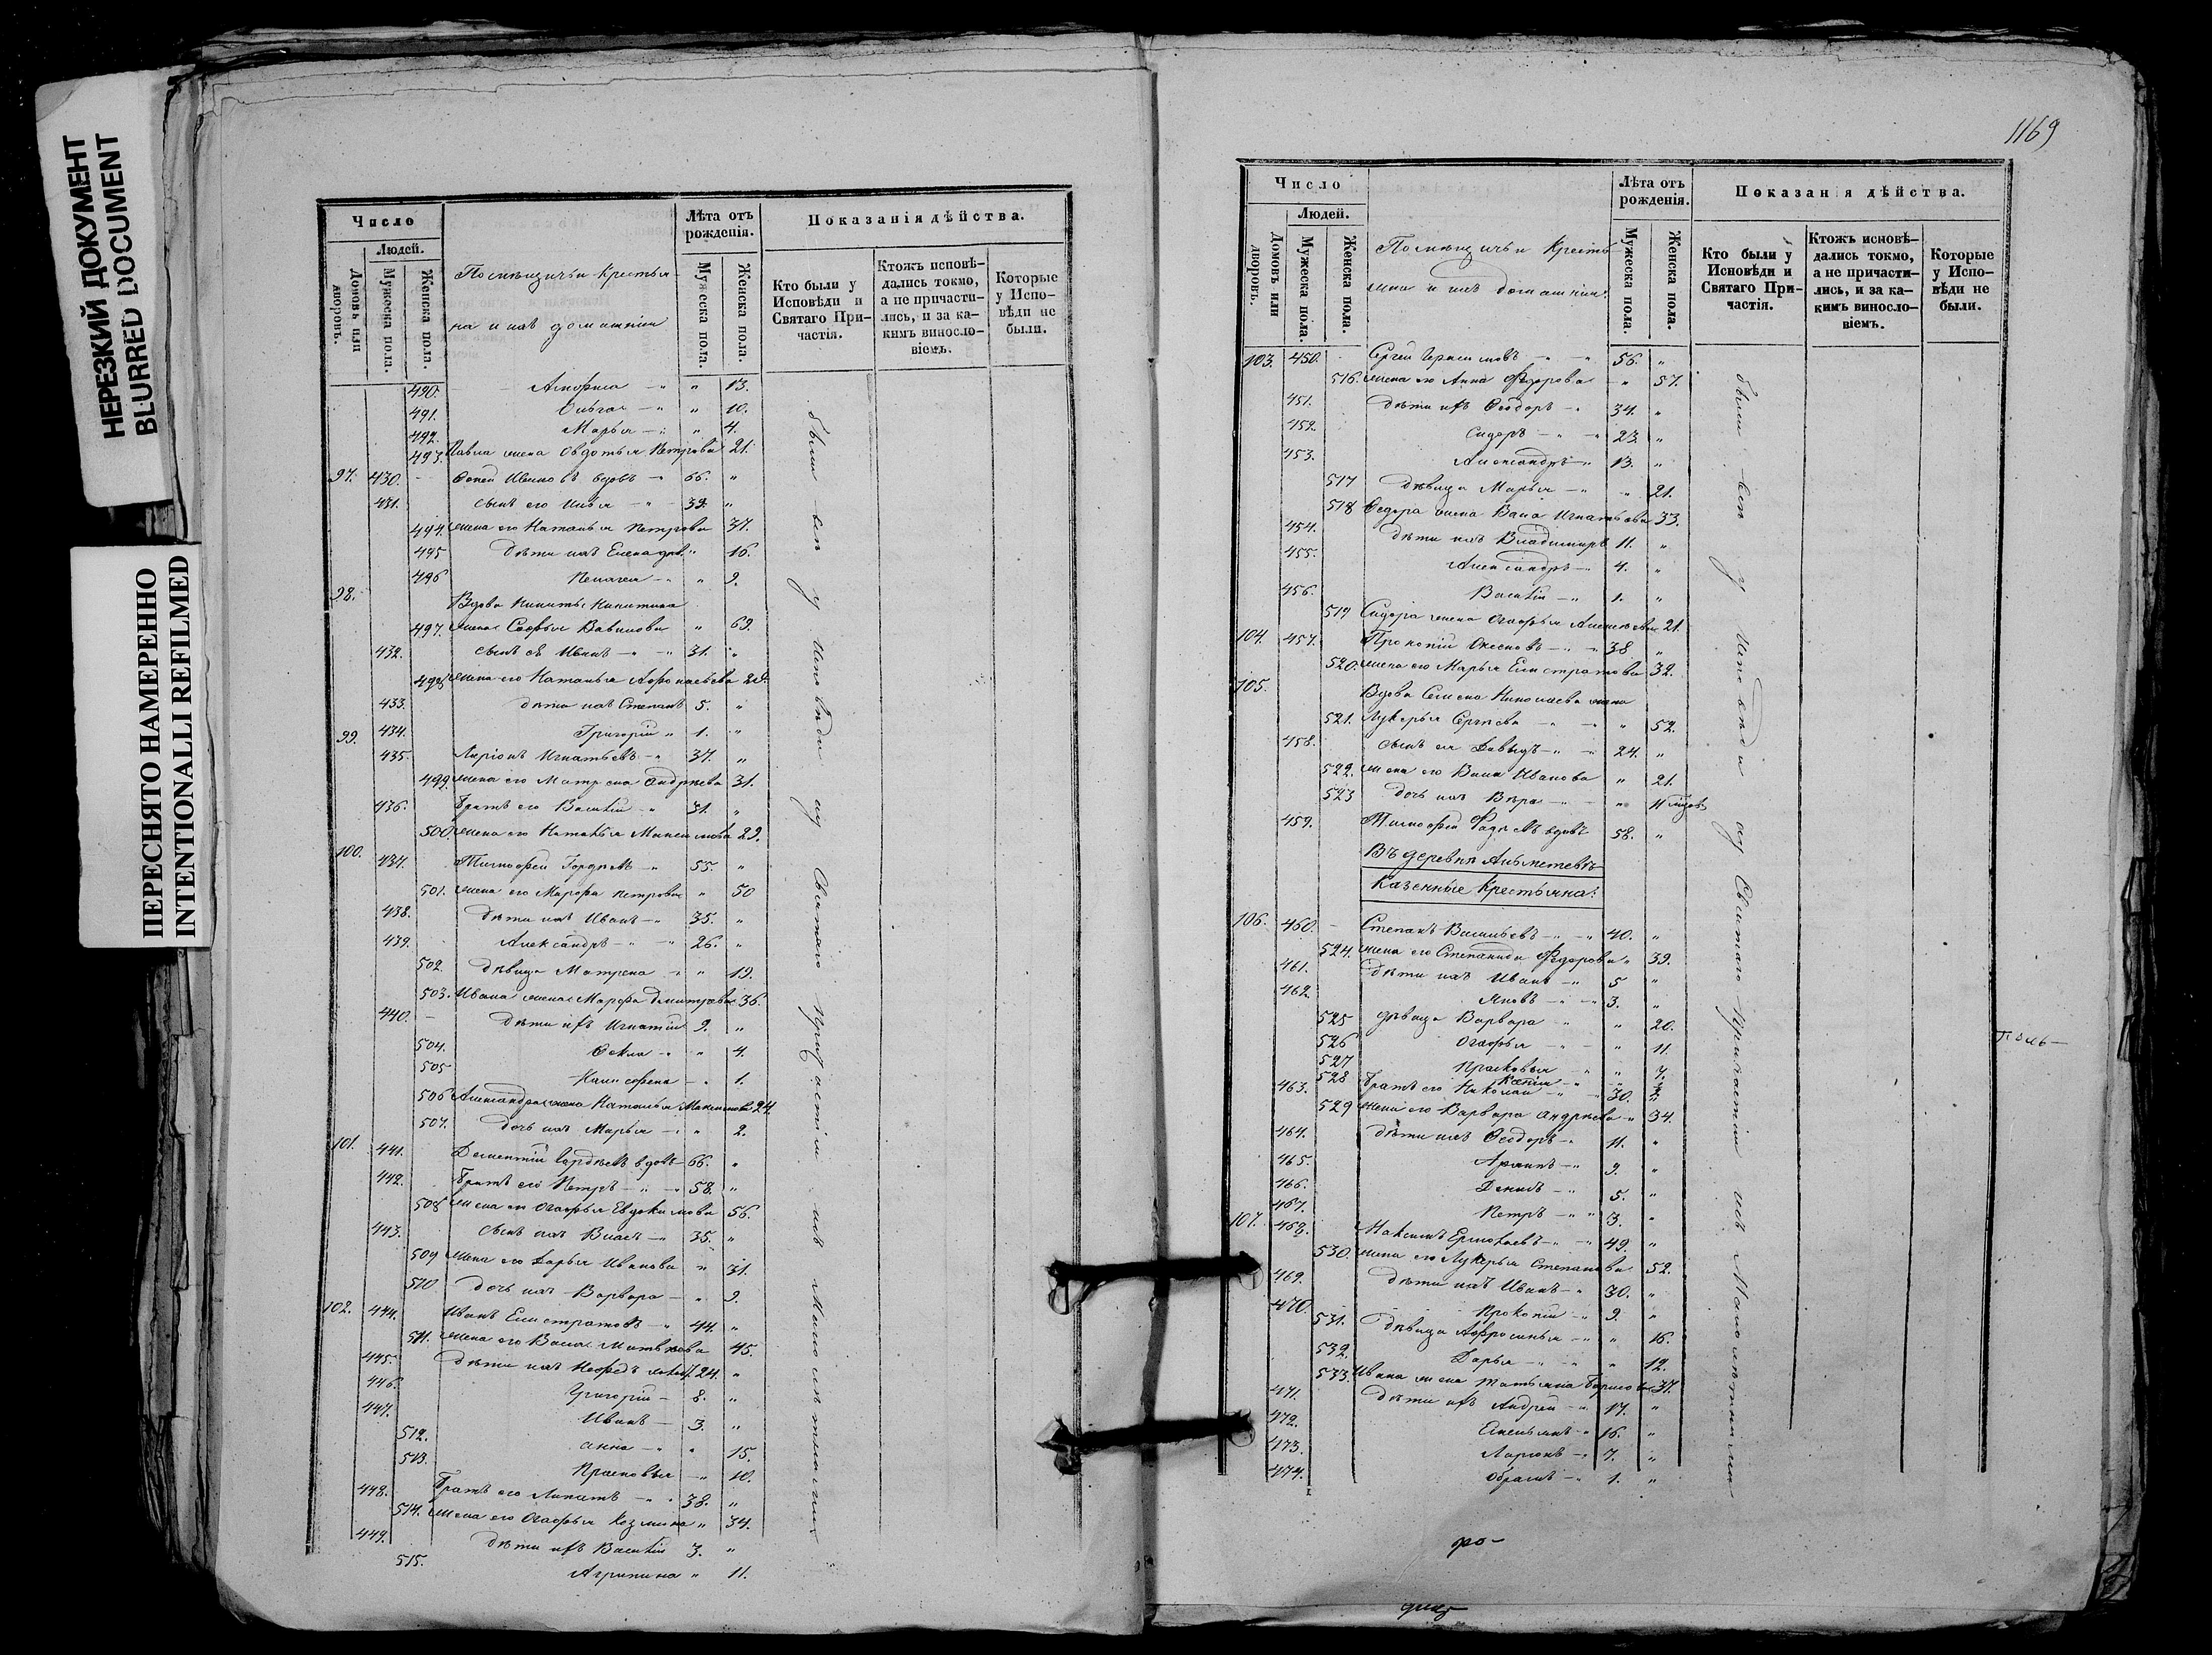 НЕРЕЗКИЙ ДОКУМЕНТ
BLURRED DOCUMENT
ПЕРЕСНЯТО НАМЕРЕННО
INTENTIONALLI REFILMED
Число
Людей.
Домовъ или дворовъ.
Мужеска пола.
Женска пола.
Помѣщичьи Крестья-
на и ихъ домашніи
Лѣта отъ рожденія.
Мужеска пола.
Женска пола.
Показанія дѣйства.
Кто были у Исповѣди и Святаго Причастія.
Ктожъ исповѣ-
дались токмо,
а не причасти-
лись, и за ка-
кимъ винosло-
віемъ.
Которые
у Испо-
вѣди не
были.
490. " 13.
491. Ольга " 10.
492. Марья " 4.
493. Павла жена Овдотья Петрова 21.
97. 430. Ивановъ вдовъ 66. "
431. сынъ его Илья 39. "
494. жена его Наталья Петрова 37.
495 дѣти ихъ Елена " 16.
496 Пелагея " 9.
98. Вдова Никитина
497. жена Софья Вавилова " 69.
432. сынъ ея Иванъ 31. "
498 жена его Наталья Афонасьева 28.
433. дѣти ихъ Степанъ 5. "
434. Григорій 1. "
99. 435. Ларіонъ Игнатьевъ 37. "
499. жена его Матрена Андрѣева 31.
436. братъ его Василій 31. "
500 жена его Наталья Максимова 29.
100. 437. Тимофей Гордѣевъ 55. "
501. жена его Марфа Петрова " 50
438. дѣти ихъ Иванъ 35. "
439. Александръ 26. "
502. дѣвица Матрена " 19.
503. Ивана жена Марфа Дмитрева 36.
440. дѣти ихъ Игнатій 9. "
504. Фекла " 4.
505 " 1.
506 Александра жена Наталья Максимова 24
507. дочь ихъ Марья " 2.
101. 441. Дементій Гордѣевъ вдовъ 66. "
442. братъ его Петръ 58. "
508 жена его Огафья Евдокимова 56.
443. сынъ ихъ Власъ 35. "
509 жена его Дарья Иванова " 31.
510 дочь ихъ Варвара " 9.
102. 444. Иванъ Елистратовъ 44. "
511. жена его Васса Матвѣева 45.
445. дѣти ихъ Нефедъ 24. "
446. Григорій 8. "
447. Иванъ 3. "
512. Анна " 15.
513. Прасковья " 10.
448. братъ его Липатъ 38. "
514. жена его Огафья Козмина " 34.
449. дѣти ихъ Василій 3. "
515. Агрипина " 11.
были всѣ у Исповѣди и у Святаго Причастія ихъ Малолѣтними
1169
Число
Людей.
Домовъ или дворовъ.
Мужеска пола.
Женска пола.
Помѣщичьи Кресть-
яна и ихъ домашніи
Лѣта отъ рожденія.
Мужеска пола.
Женска пола.
Показанія дѣйства.
Кто были у Исповѣди и Святаго Причастія.
Ктожъ исповѣ-
дались токмо,
а не причасти-
лись, и за ка-
кимъ винosло-
віемъ.
Которые
у Испо-
вѣди не
были.
103. 450. Сергей Герасимовъ 56. "
516. жена его Анна Федорова " 57.
451. дѣти ихъ Феодоръ 34. "
452. Сидоръ 23. "
453. Александръ 13. "
517 дѣвица Марья " 21.
518 Федора жена Васса Игнатьева 33.
454. дѣти ихъ Владимиръ 11. "
455. Александръ 4. "
456. Василій 1. "
519 Сидора жена Огафья Алексѣева 21.
104. 457. Прокопій 38 "
520. жена его Марья Елистратова 32.
105. Вдова Семена Николаева жена
521. Лукерья Сергѣева " 52.
458. сынъ ея Давыдъ 24. "
522. жена его Васса Иванова " 21.
523 дочь ихъ Вѣра " 11 мѣсяц.
459. Тимофей вдовъ 58. "
Въ деревнѣ Альметевѣ
Казенные Крестьяна:
106. 460. Степанъ Васильевъ 40. "
524. жена его Степанида Федорова " 39.
461. дѣти ихъ Иванъ 5 "
462. Яковъ 3. "
525 дѣвица Варвара " 20.
526 Огафья " 11.
527 Прасковья " 7.
528 Ксенія
463. братъ его Николай 30. "
529 жена его Варвара Андрѣева " 34.
464. дѣти ихъ Феодоръ 11. "
465. 9. "
466. Денисъ 5. "
467. Петръ 3. "
107. 468. Максимъ Ермолаевъ 49. "
530. жена его Лукерья Степанова 52.
469. дѣти ихъ Иванъ 30. "
470. Прокопій 9. "
531. дѣвица Афросинья " 16.
532. Дарья " 12.
533. Ивана жена Татьяна Борисова 37.
471. дѣти ихъ Андрей 17. "
472. Емельянъ 16. "
473. Ларіонъ 7. "
474. Обрамъ 1. "
были всѣ у Исповѣди и у Святаго Причастія ихъ Малолѣтними